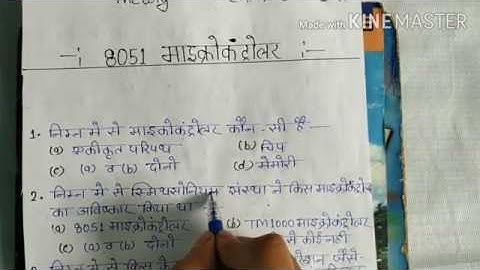 Made with KINEMASTER
8051 माइक्रोकंट्रोलर
1. निम्न में से माइक्रोकंट्रोलर कौन-सी है
(a) एकीकृत परिपथ (b) चिप
(c) (a) व (b) दोनो (d) मेमोरी
2. निम्न में से स्मिथसोनियम संस्था ने किस माइक्रोकंट्रोलर
का आविष्कार किया था
(a) 8051 माइक्रोकंट्रोलर (b) TM1000 माइक्रोकंट्रोलर
(c) (a) व (b) दोनो से कोई नही
निम्न में से किस